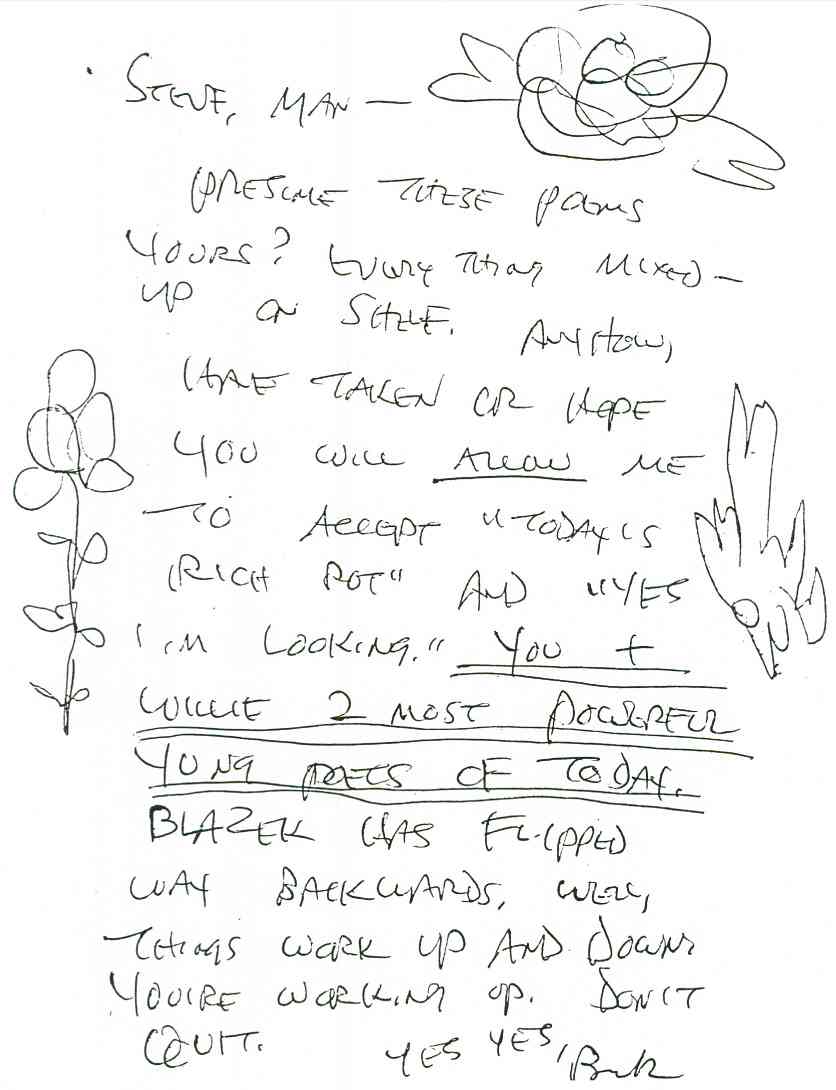 STEVE, MAN —
PRESUME THESE POEMS
YOURS? EVERY THING MIXED —
UP ON SHELF. ANYHOW,
HAVE TAKEN OR HOPE
YOU WILL ALLOW ME
TO ACCEPT "TODAY IS
RICH ROT" AND "YES
I'M LOOKING." YOU +
WILLIE 2 MOST POWERFUL
YUNG POETS OF TODAY.
BLAZEK HAS FLIPPED
WAY BACKWARDS, WELL,
THINGS WORK UP AND DOWN.
YOU'RE WORKING UP. DON'T
QUIT. YES YES, Buk